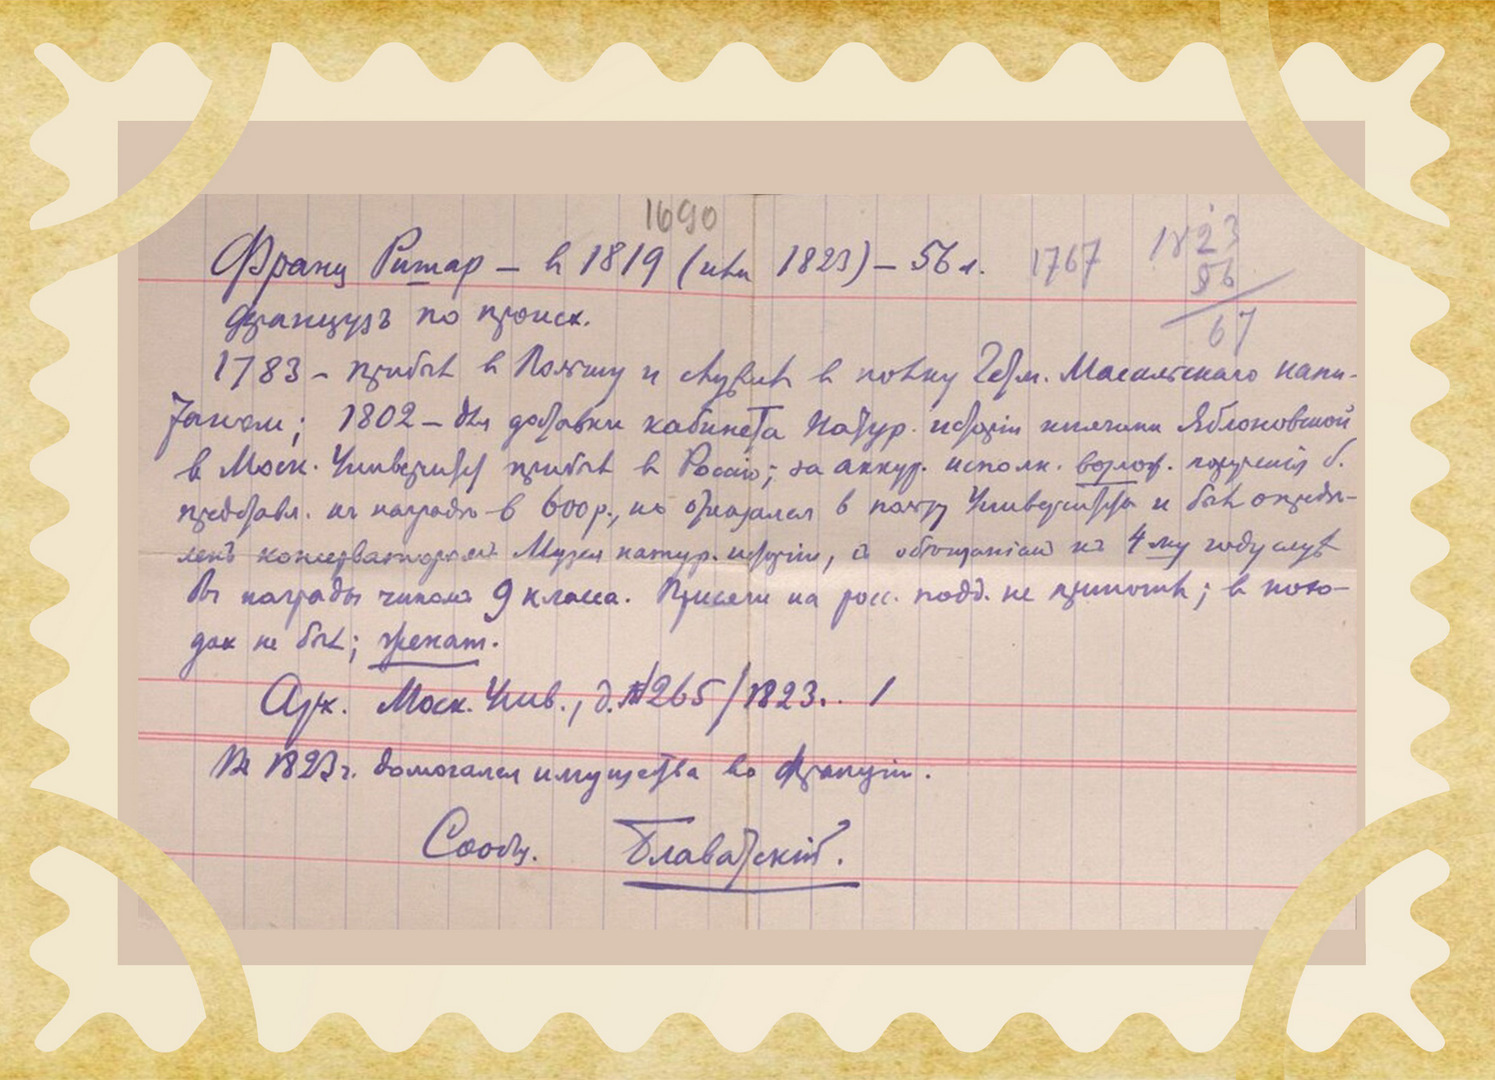 1690
Франц Ришар – в 1819 (или 1823) – 56 л. 1767 1823
56
67
французъ по происх.
1783 – прибыл в Польшу и служил в полку Гетм. Масальскаго капи-
таном; 1802 – для доставки кабинета Натур. исторіи княгини Яблоновской
в Моск. Университет прибыл в Россію; за аккур. исполн. возлож. порученія б.
представл. к награде в 600 р., но отказался в пользу Университета и был опреде-
ленъ консерваторомъ Музея натур. исторіи, с обещаніем къ 4-му году служ
бы награды чином 9 класса. Присяги на росс. подд. не приносил; в похо-
дах не был; женат.
Арх. Моск. Унив., д. №265/1823.. 1
В 1823 г. домогался имущества во Франціи.
Сообщ. Блаватскій.